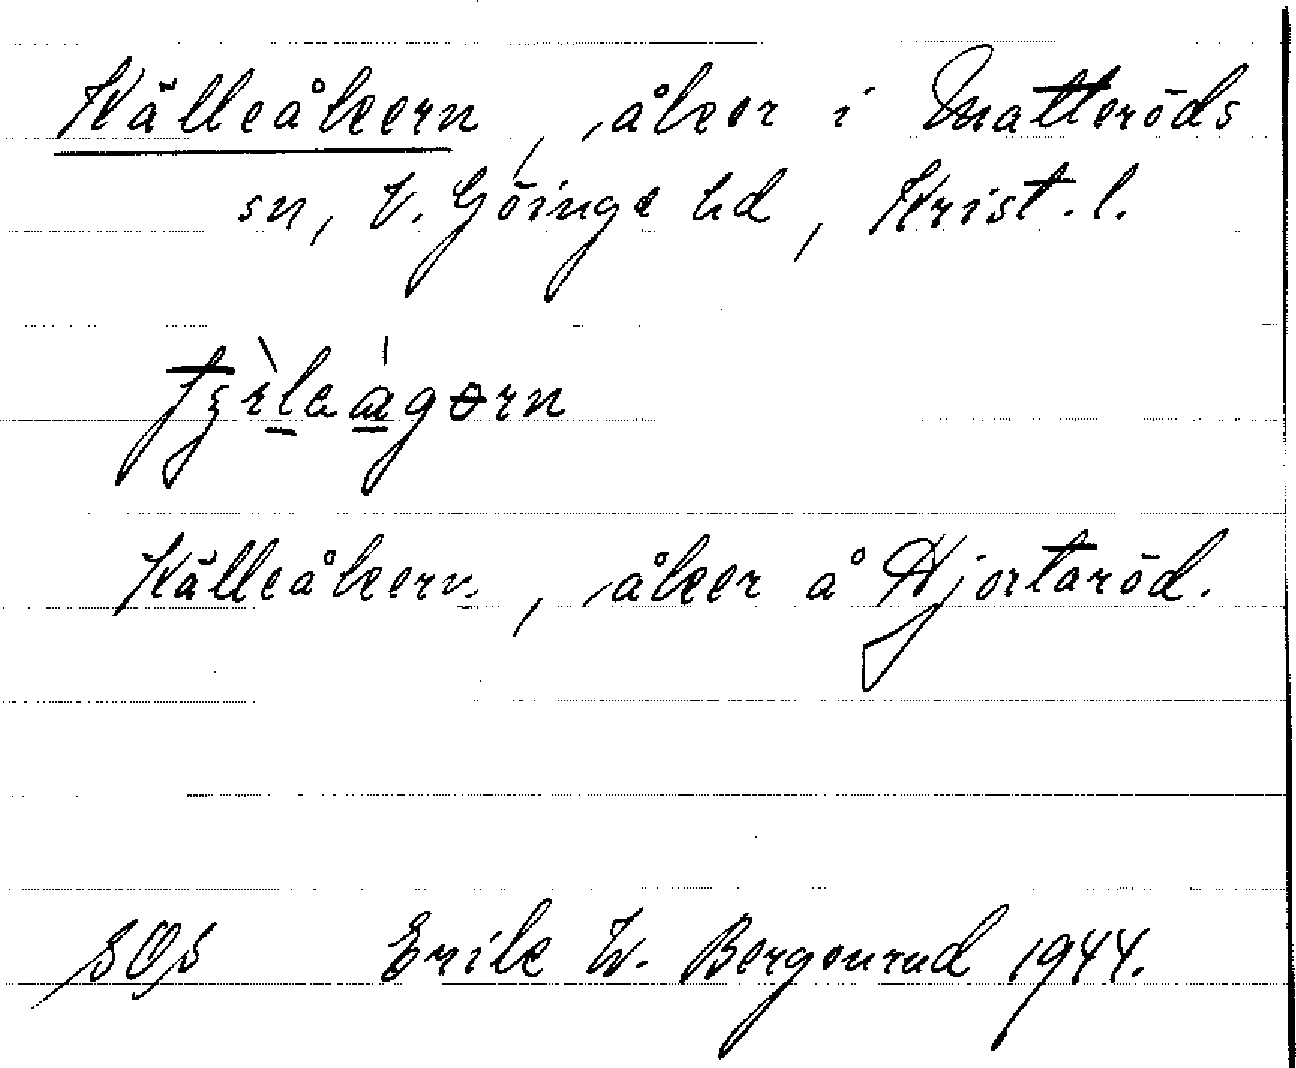 Källeåkern, åker i Matteröds
sn, V. Göinge hd, Krist. l.
Källeåkern, åker å Hjortaröd.
SOS Erik W. Bergenrud 1944.